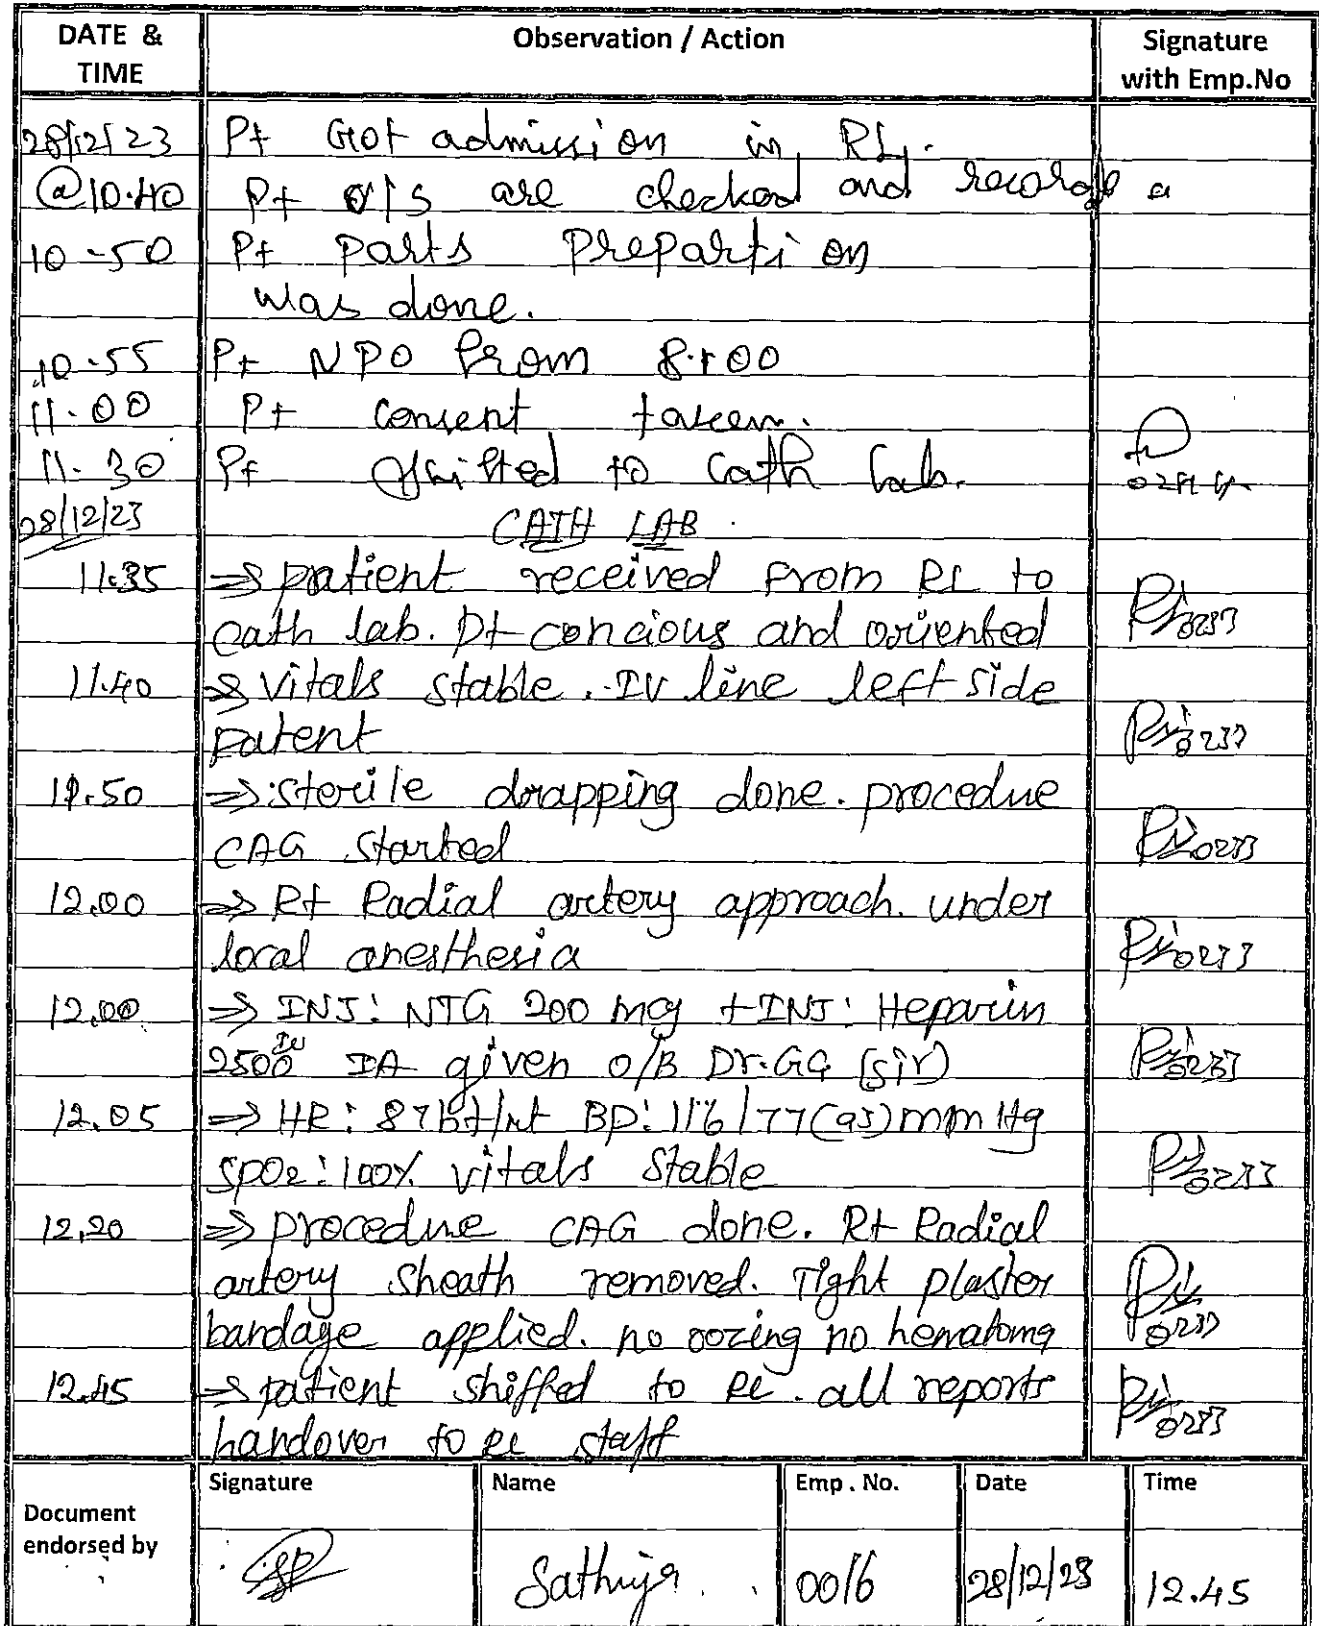 DATE & TIME Observation / Action Signature with Emp.No
28/12/23 Pt Got admission in RL.
@10.40 Pt v/s are checked and recorde
10-50 Pt parts Prepartion
was done.
10.55 Pt NPO from 8:00
11.00 Pt consent
11.30 Pt shifted to Cath Lab.
28/12/23 CATH LAB
11.35 ⇒ patient received from RL to
cath lab. Pt concious and oriented
11.40 ⇒ vitals stable. IV line left side
patent
11.50 ⇒ sterile drapping done. procedue
CAG started
12.00 ⇒ Rt Radial artery approach. under
local anesthesia
12.00 ⇒ INJ: NTG 200 mcg + INJ: Heparin
2500 IU IA given O/B Dr.GG (sir)
12.05 ⇒ HR: 87bt/mt BP: 116/77(95)mmHg
SPO2: 100% vitals stable
12.20 ⇒ procedue CAG done. Rt Radial
artery sheath removed. Tight plaster
bandage applied. no oozing no hematoma
12.45 ⇒ patient shiffed to RL. all reports
handover to RL staff
Document endorsed by Signature Name Emp. No. Date Time
Sathiya 0016 28/12/23 12.45